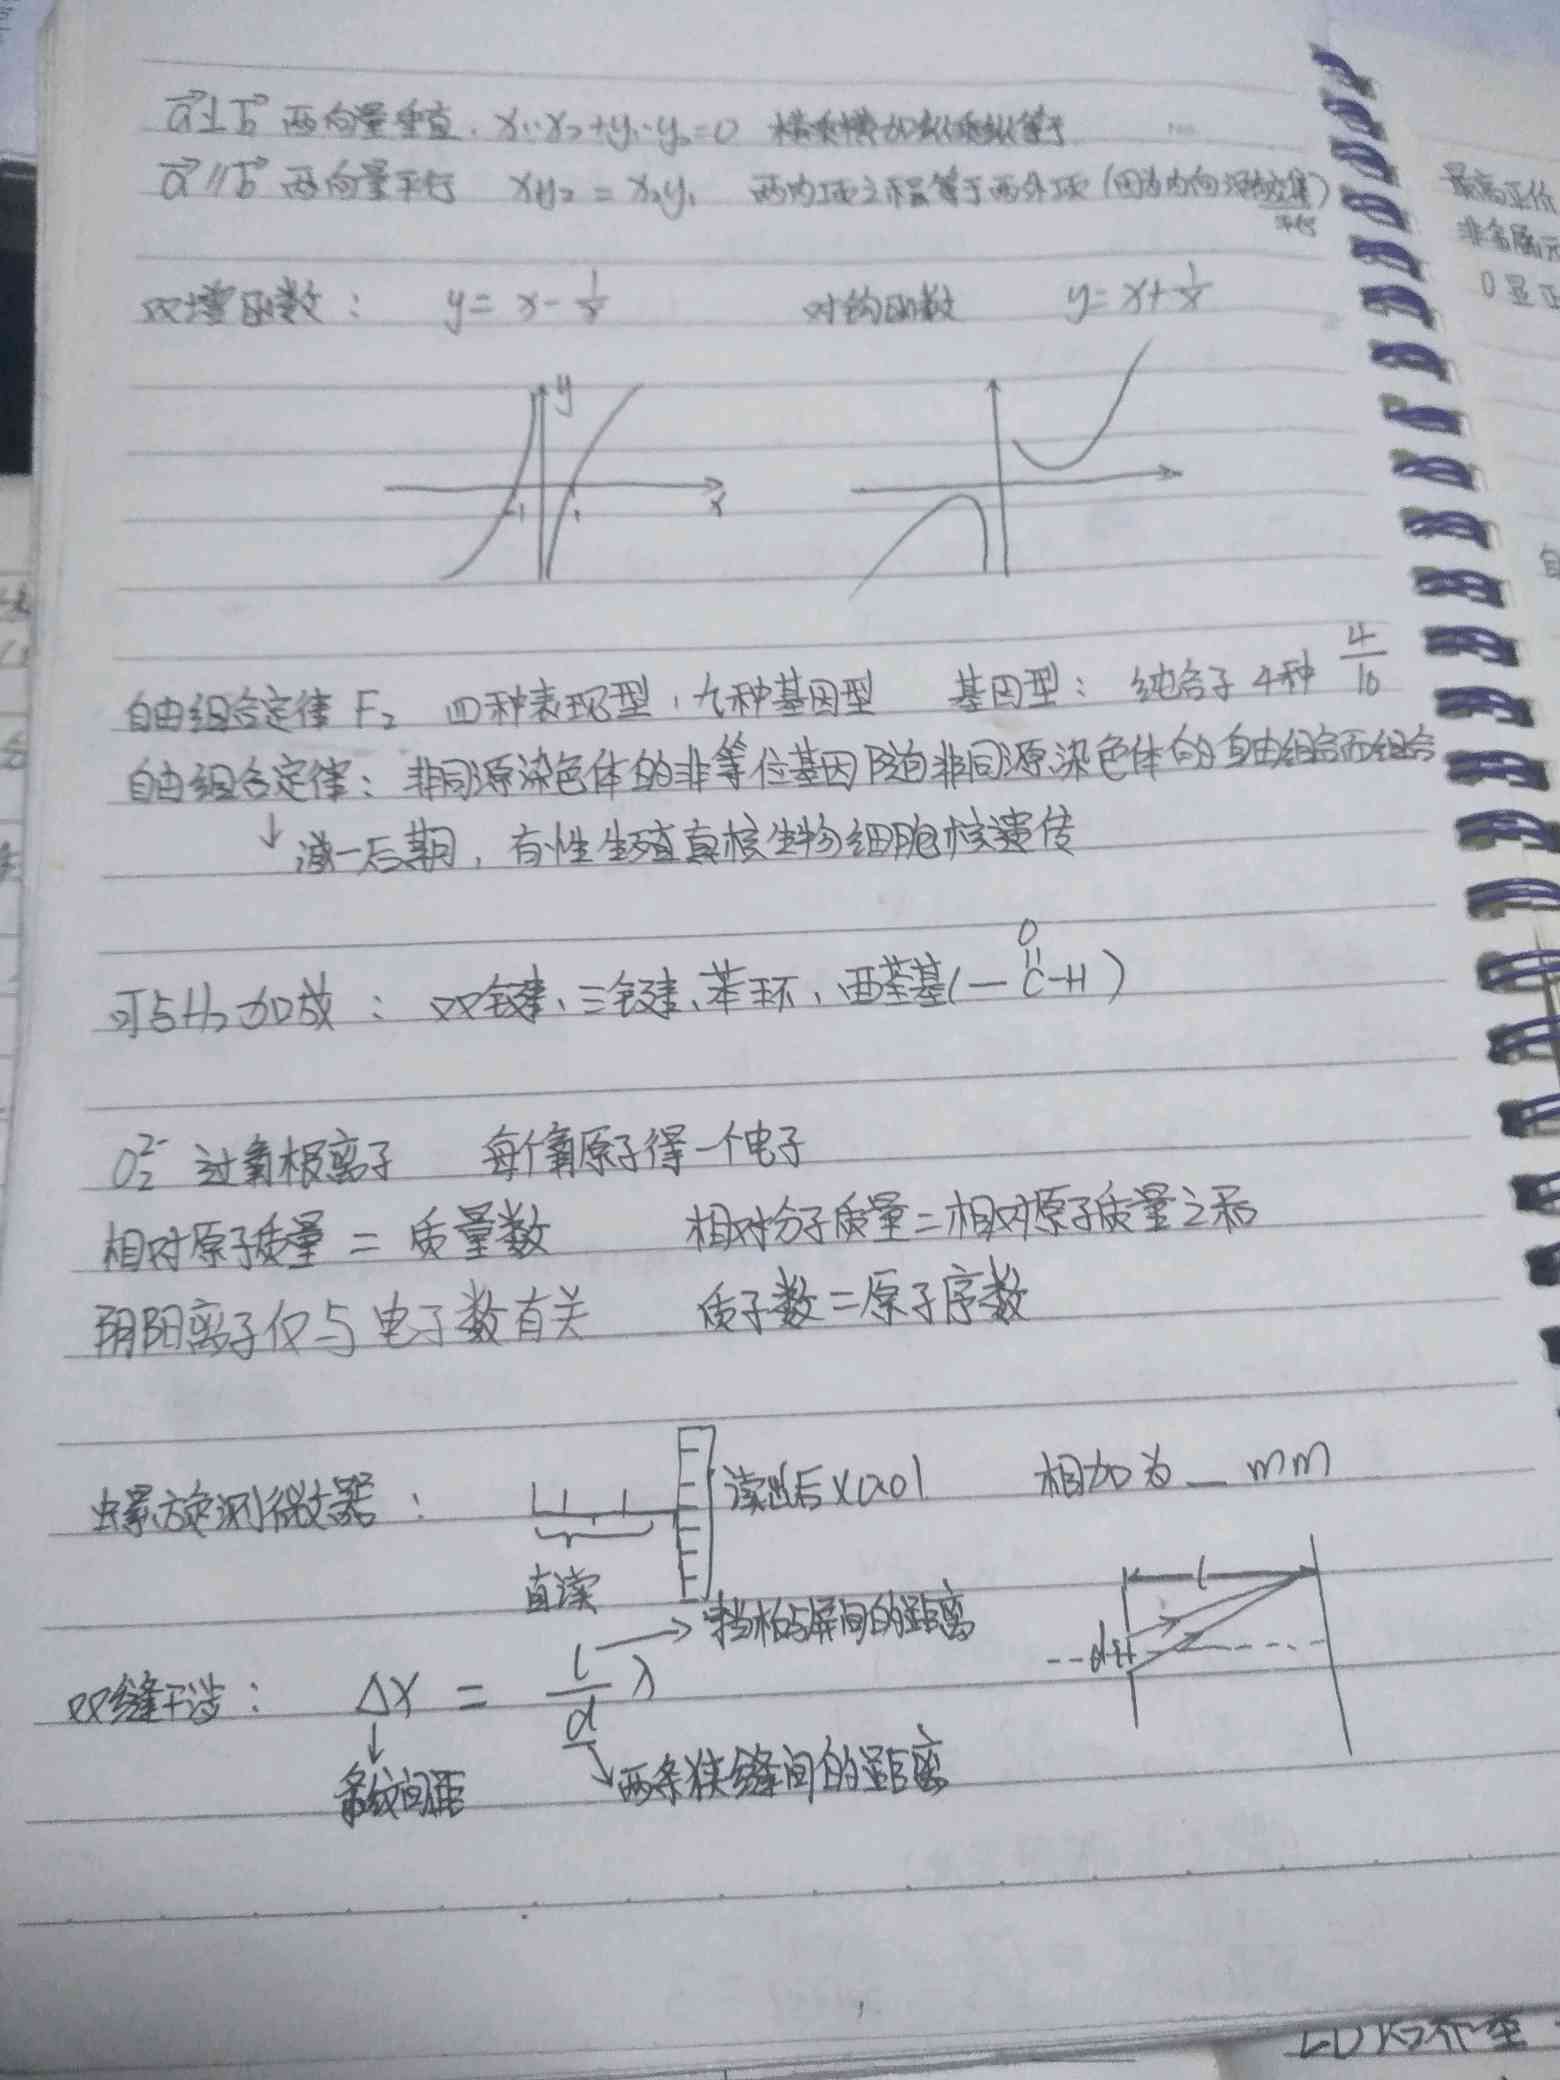 a⃗⊥b⃗ 两向量垂直. x₁·x₂+y₁·y₂=0 横乘横加纵乘纵等于
a⃗∥b⃗ 两向量平行 x₁y₂=x₂y₁ 两内项之积等于两外项(因为内向
平行
双增函数: y=x-1/x 对钩函数 y=x+1/x
y
-1 1 x
自由组合定律 F₂ 四种表现型,九种基因型 基因型: 纯合子4种 4/16
自由组合定律: 非同源染色体的非等位基因随非同源染色体的自由组合而组合
↓减一后期,有性生殖真核生物细胞核遗传
可与H₂加成: 双键、三键、苯环、醛基(—C(=O)—H)
O₂²⁻ 过氧根离子 每个氧原子得一个电子
相对原子质量=质量数 相对分子质量=相对原子质量之和
阴阳离子仅与电子数有关 质子数=原子序数
螺旋测微器: 读出后×0.01 相加为_mm
直读
l
→挡板与屏间的距离
双缝干涉: Δx = l/d λ
d
↓条纹间距 ↘两条狭缝间的距离
最高正价
非金属元
O显正
自